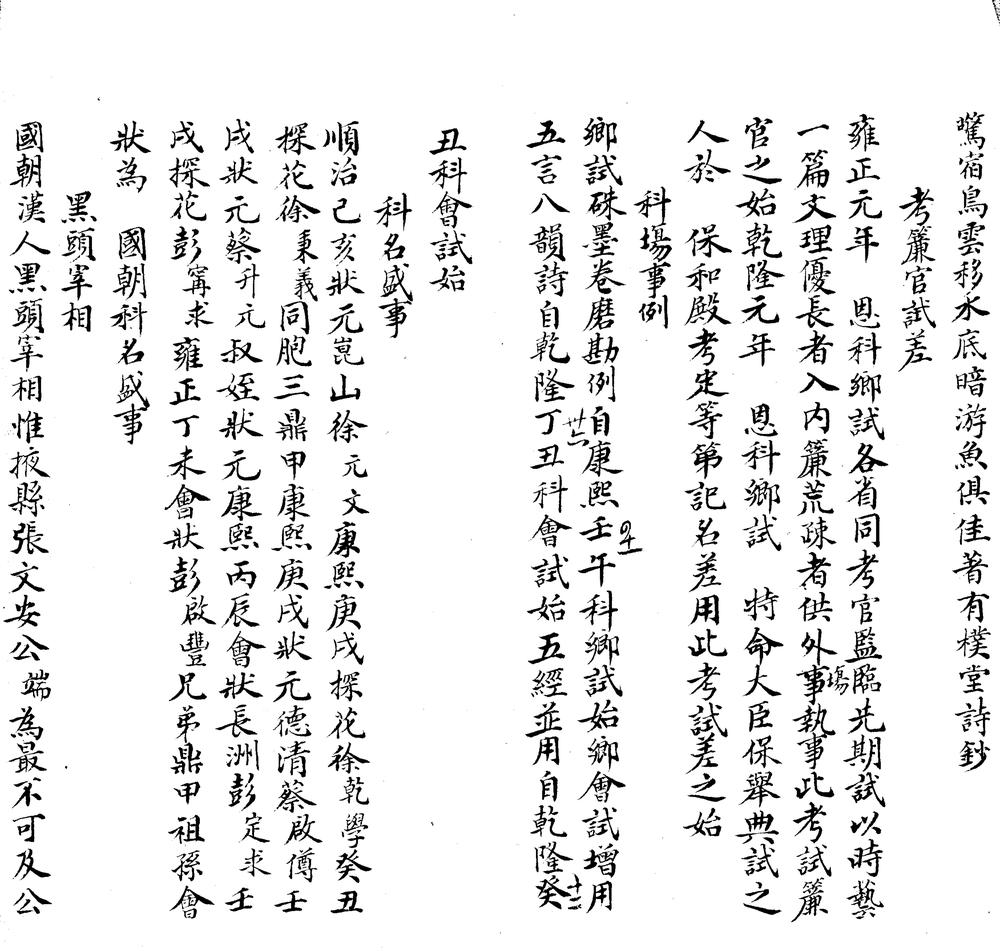 驚宿鳥雲移水底暗游魚俱佳著有樸堂詩鈔
考簾官試差
雍正元年　恩科鄉試各省同考官監臨先期試以時藝
一篇文理優長者入內簾荒疎者供外場事執事此考試簾
官之始乾隆元年　恩科鄉試　特命大臣保舉典試之
人於　保和殿考定等第記名差用此考試差之始
科場事例
鄉試硃墨卷磨勘例自康熙壬午科鄉試始鄉會試增用
五言八韻詩自乾隆丁丑科會試始五經並用自乾隆癸
丑科會試始
科名盛事
順治己亥狀元崑山徐元文康熙庚戌探花徐乾學癸丑
探花徐秉義同胞三鼎甲康熙庚戌狀元德清蔡啟僔壬
戌狀元蔡升元叔姪狀元康熙丙辰會狀長洲彭定求壬
戌探花彭寗求雍正丁未會狀彭啟豐兄弟鼎甲祖孫會
狀為　國朝科名盛事
黑頭宰相
國朝漢人黑頭宰相惟掖縣張文安公端為最不可及公